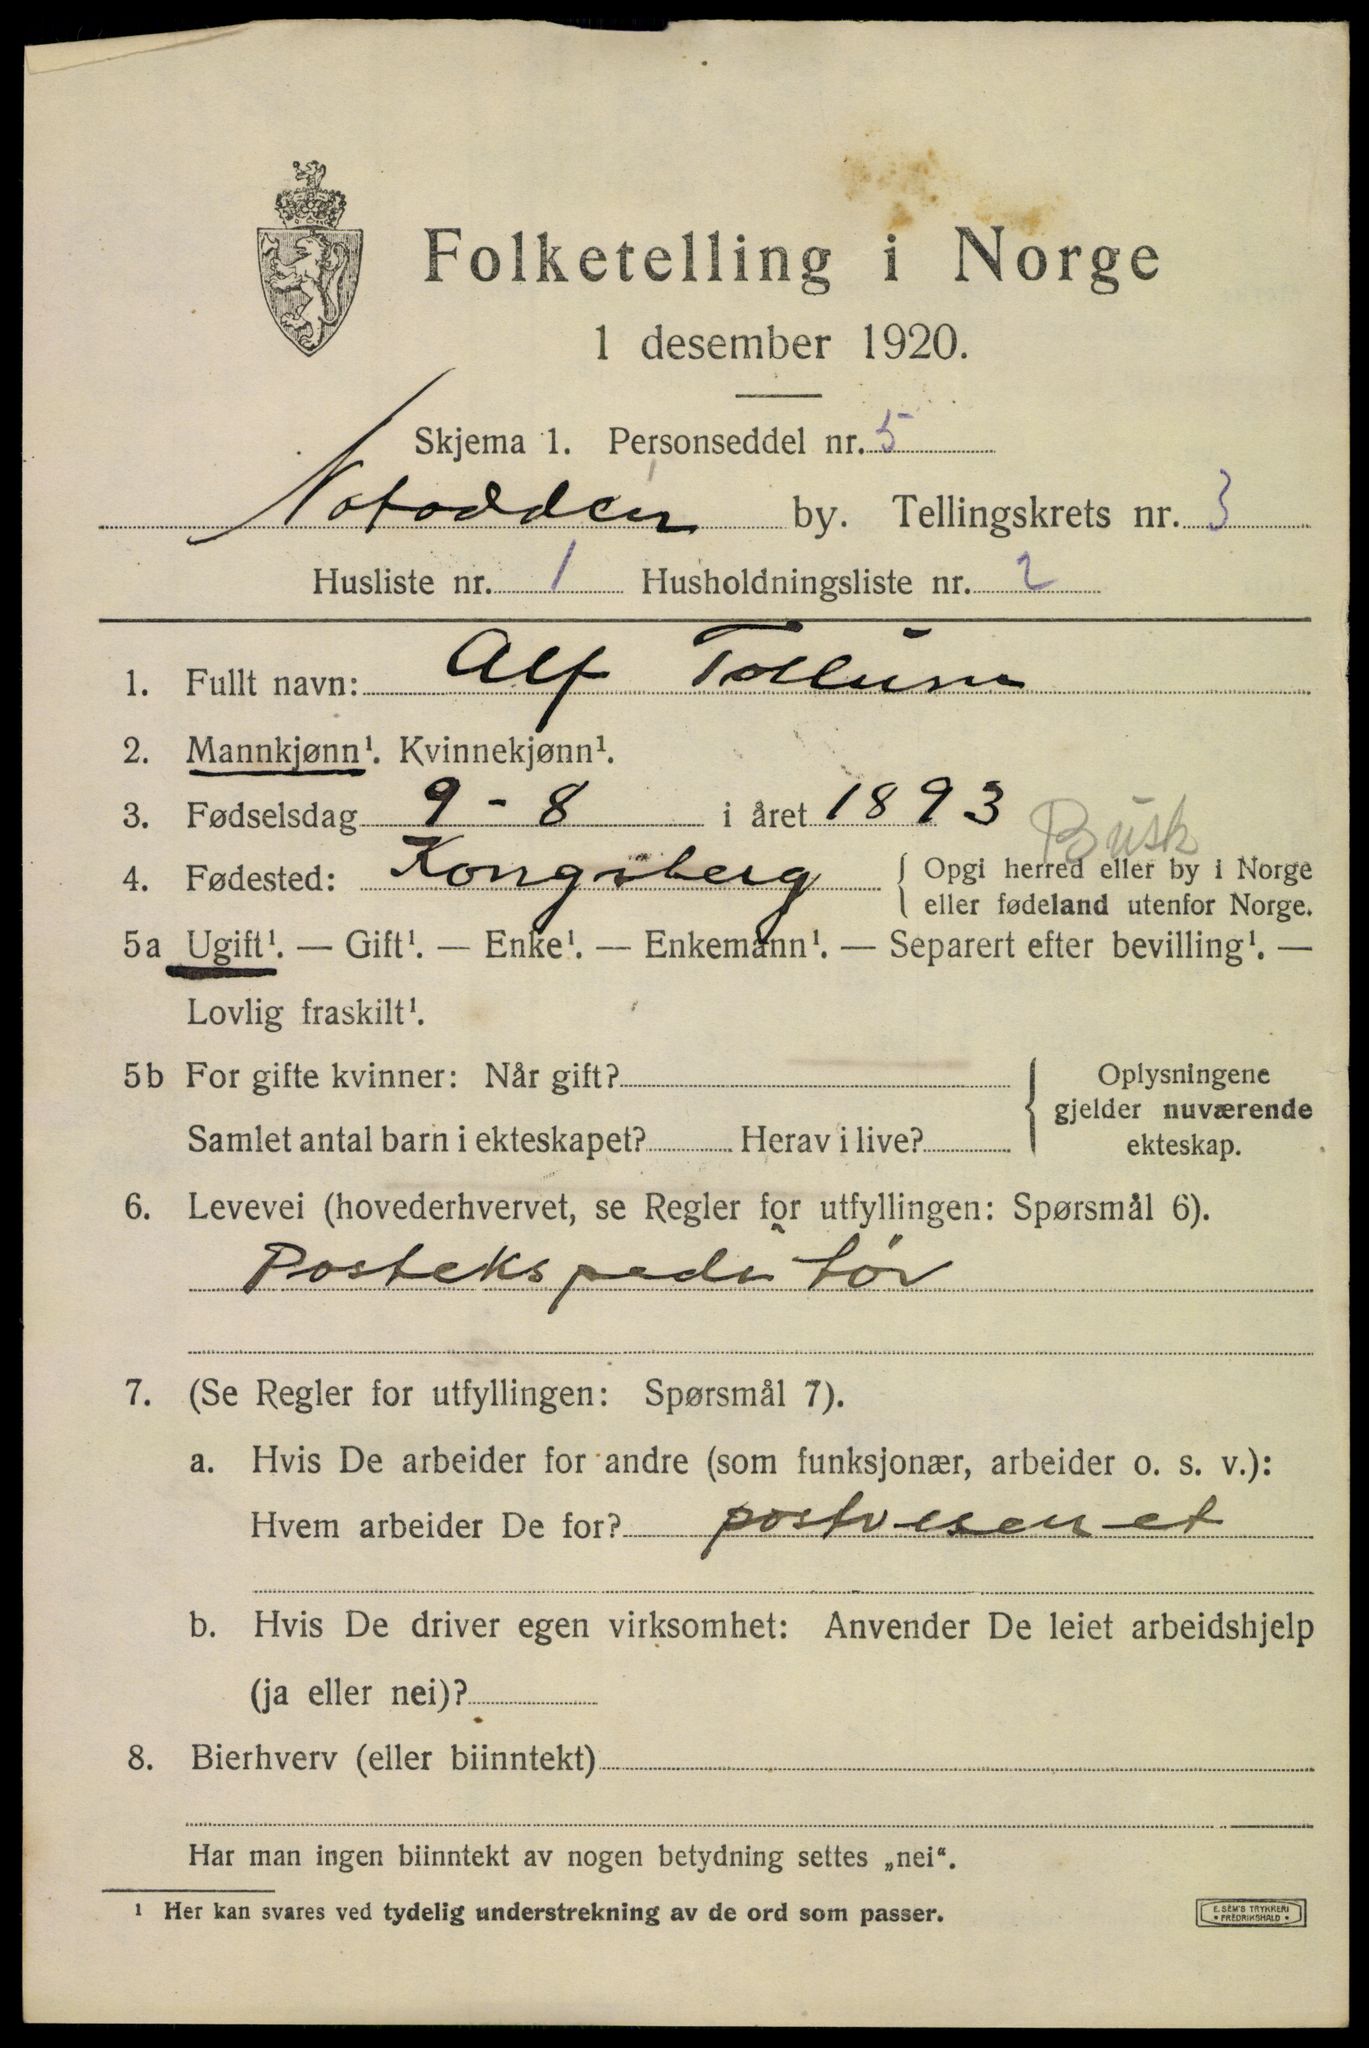 Folketelling i Norge
1 desember 1920.
Skjema 1. Personseddel nr. 5
Notodden by. Tellingskrets nr. 3
Husliste nr. 1 Husholdningsliste nr. 2
1. Fullt navn: Alf
2. Mannkjønn¹. Kvinnekjønn¹.
3. Fødselsdag 9-8 i året 1893
Busk
4. Fødested: Kongsberg { Opgi herred eller by i Norge
eller fødeland utenfor Norge.
5a Ugift¹. — Gift¹. — Enke¹. — Enkemann¹. — Separert efter bevilling¹. —
Lovlig fraskilt¹.
5b For gifte kvinner: Når gift? { Oplysningene
gjelder nuværende
Samlet antal barn i ekteskapet? Herav i live? ekteskap.
6. Levevei (hovederhvervet, se Regler for utfyllingen: Spørsmål 6).
Postekspeditør
7. (Se Regler for utfyllingen: Spørsmål 7).
a. Hvis De arbeider for andre (som funksjonær, arbeider o. s. v.):
Hvem arbeider De for? postvesenet
b. Hvis De driver egen virksomhet: Anvender De leiet arbeidshjelp
(ja eller nei)?
8. Bierhverv (eller biinntekt)
Har man ingen biinntekt av nogen betydning settes „nei“.
¹ Her kan svares ved tydelig understrekning av de ord som passer.
E. SEM'S TRYKKERI
• FREDRIKSHALD •